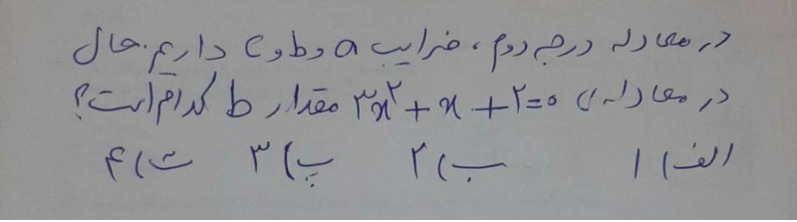 در معادله درجه دوم، ضرایب a و b و c داریم. حال
در معادله ی ۳x²+x+۲=۰ مقدار b کدام است؟
الف) ۱ ب) ۲ پ) ۳ ت) ۴